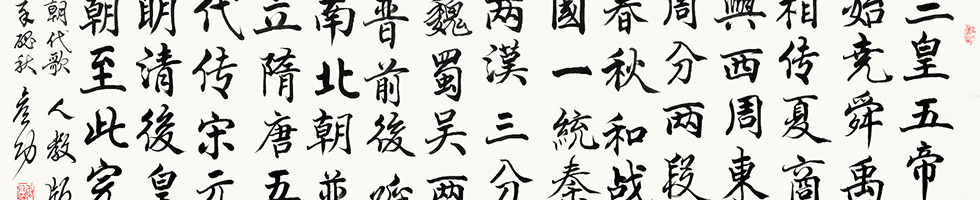 三皇五帝
始尧舜禹
相传夏商
興西周東
周分两段
春秋和战
國一統秦
两漢三分
魏蜀吴两
晋前後
南北朝並
立隋唐五
代传宋元
明清後皇
朝至此完
朝代歌 人教版
秋